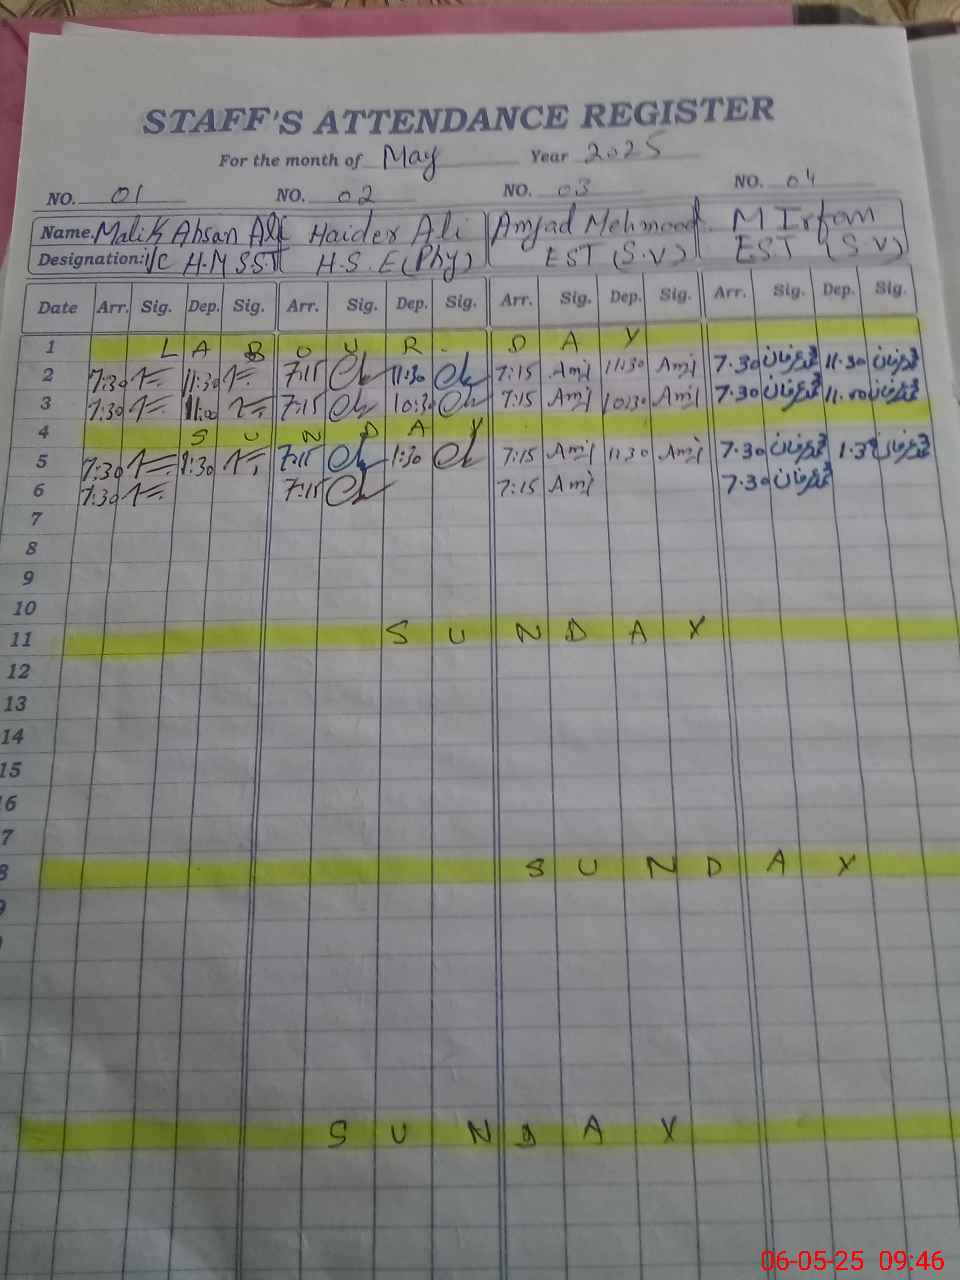 STAFF'S ATTENDANCE REGISTER
For the month of May Year 2025
NO. 01 NO. 02 NO. 03 NO. 04
Name. Malik Ahsan Ali Haider Ali Amjad Mehmood M Irfan
Designation: I/c H.M SST H.S.E (Phy) EST (S.V) EST (S.V)
Date Arr. Sig. Dep. Sig. Arr. Sig. Dep. Sig. Arr. Sig. Dep. Sig. Arr. Sig. Dep. Sig.
1 LABOUR DAY
2 7:30 11:30 7:15 11:30 7:15 Amj 11:30 Amj 7.30 محمد عرفان 11.30 محمد عرفان
3 7:30 11:00 7:15 10:30 7:15 Amj 10:30 Amj 7.30 محمد عرفان 11.00 محمد عرفان
4 SUNDAY
5 7:30 1:30 7:15 1:30 7:15 Amj 11:30 Amj 7.30 محمد عرفان 1.30 محمد عرفان
6 7:30 7:15 7:15 Amj 7.30 محمد عرفان
7
8
9
10
11 SUNDAY
12
13
14
15
6
7
8 SUNDAY
9
SUNDAY
06-05-25 09:46